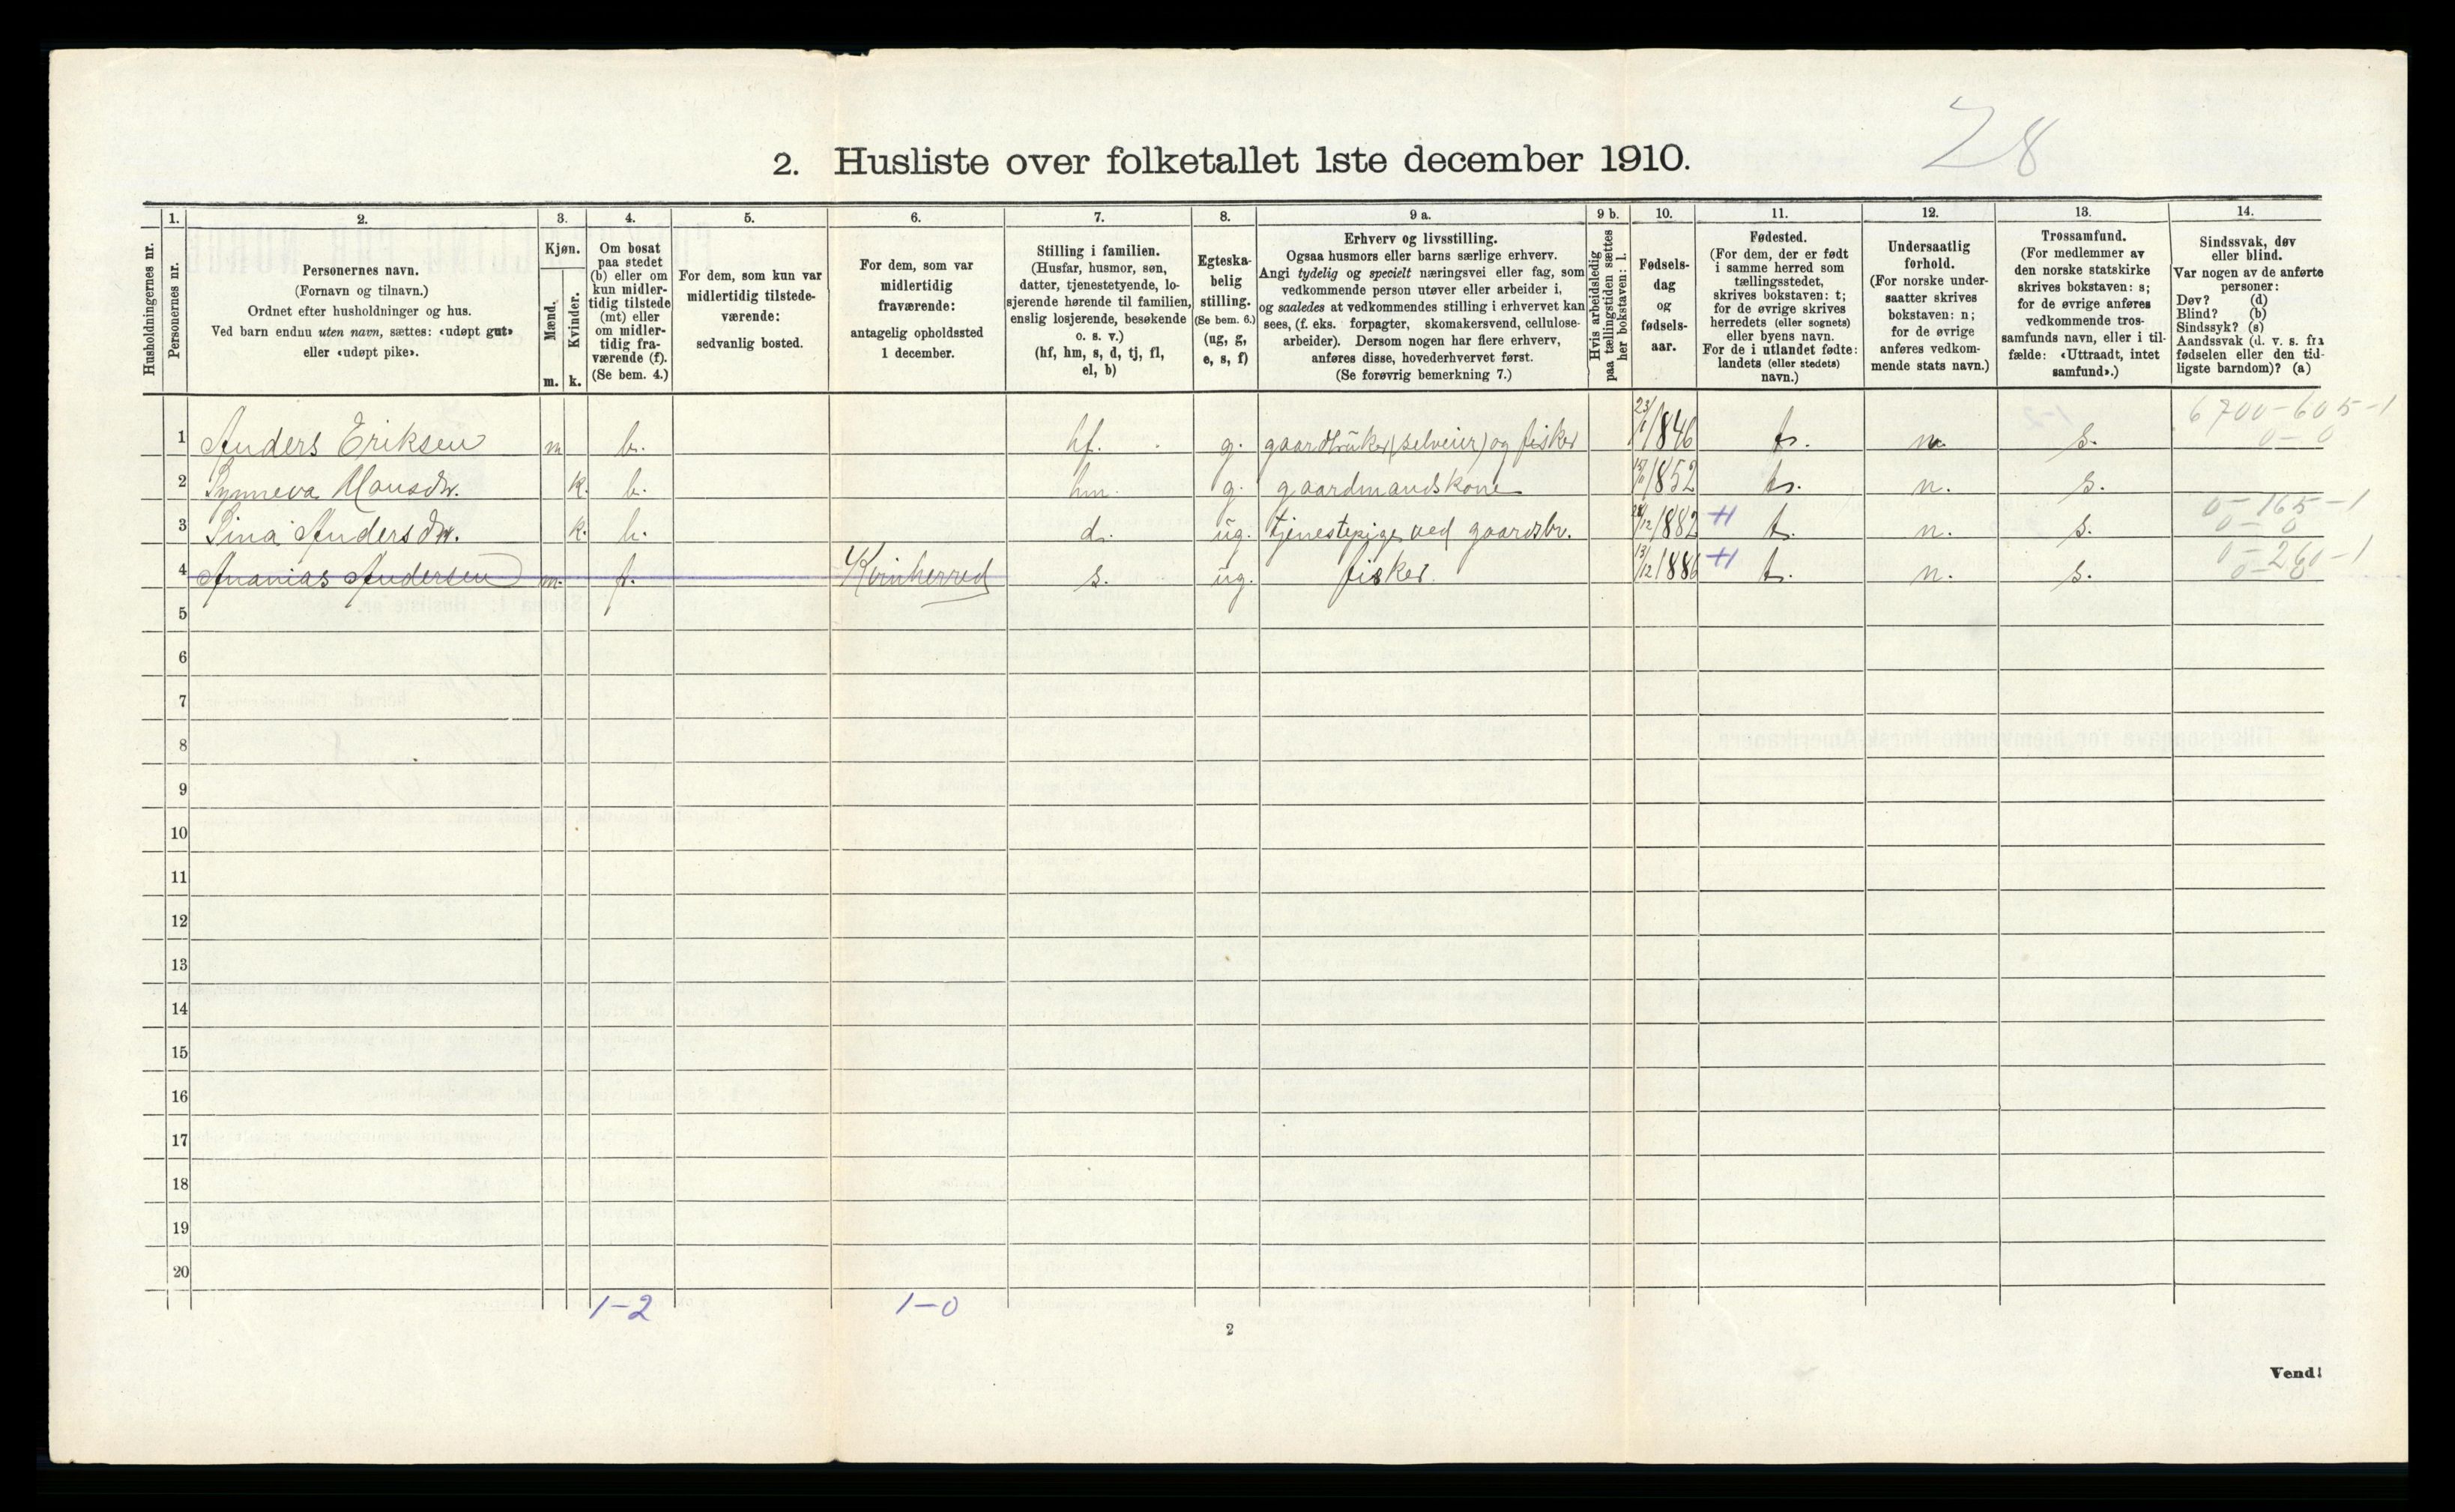 28
2. Husliste over folketallet 1ste december 1910.
Husholdningernes nr.
1.
Personernes nr.
2.
Personernes navn.
(Fornavn og tilnavn.)
Ordnet efter husholdninger og hus.
Ved barn endnu uten navn, sættes: «udøpt gut»
eller «udøpt pike».
3.
Kjøn.
Mænd.
m.
Kvinder.
k.
4.
Om bosat
paa stedet
(b) eller om
kun midler-
tidig tilstede
(mt) eller
om midler-
tidig fra-
værende (f).
(Se bem. 4.)
5.
For dem, som kun var
midlertidig tilstede-
værende:
sedvanlig bosted.
6.
For dem, som var
midlertidig
fraværende:
antagelig opholdssted
1 december.
7.
Stilling i familien.
(Husfar, husmor, søn,
datter, tjenestetyende, lo-
sjerende hørende til familien,
enslig losjerende, besøkende
o. s. v.)
(hf, hm, s, d, tj, fl,
el, b)
8.
Egteska-
belig
stilling.
(Se bem. 6.)
(ug, g,
e, s, f)
9 a.
Erhverv og livsstilling.
Ogsaa husmors eller barns særlige erhverv.
Angi tydelig og specielt næringsvei eller fag, som
vedkommende person utøver eller arbeider i,
og saaledes at vedkommendes stilling i erhvervet kan
sees, (f. eks. forpagter, skomakersvend, cellulose-
arbeider). Dersom nogen har flere erhverv,
anføres disse, hovederhvervet først.
(Se forøvrig bemerkning 7.)
9 b.
Hvis arbeidsledig
paa tællingstiden sættes
her bokstaven: l.
10.
Fødsels-
dag
og
fødsels-
aar.
11.
Fødested.
(For dem, der er født
i samme herred som
tællingsstedet,
skrives bokstaven: t;
for de øvrige skrives
herredets (eller sognets)
eller byens navn.
For de i utlandet fødte:
landets (eller stedets)
navn.)
12.
Undersaatlig
forhold.
(For norske under-
saatter skrives
bokstaven: n;
for de øvrige
anføres vedkom-
mende stats navn.)
13.
Trossamfund.
(For medlemmer av
den norske statskirke
skrives bokstaven: s;
for de øvrige anføres
vedkommende tros-
samfunds navn, eller i til-
fælde: «Uttraadt, intet
samfund».)
14.
Sindssvak, døv
eller blind.
Var nogen av de anførte
personer:
Døv? (d)
Blind? (b)
Sindssyk? (s)
Aandssvak (d. v. s. fra
fødselen eller den tid-
ligste barndom)? (a)
6700-605-1
0-0
1 Anders Eriksen m b. hf. g. gaardbruker (selveier) og fisker 1846 t. n. s.
2 Synneva Monsdtr. k. b. hm. g. gaardmandskone 1852 t. n. s.
0-165-1
0-0
3 Sina Andersdtr. k. b. d. ug. tjenestepige ved gaardsbr. 1882 t. n. s.
0-260-1
0-0
4 Ananias Andersen m. f. Kvinherred s. ug. fisker. 13/12 1886 t. n. s.
5
6
7
8
9
10
11
12
13
14
15
16
17
18
19
20
1-2 1-0
2
Vend!